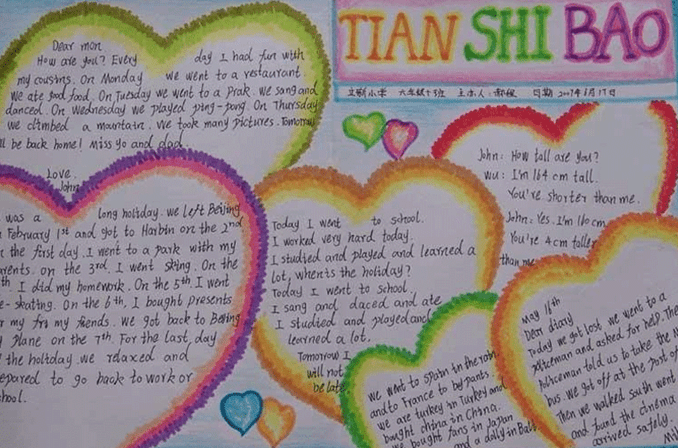 TIAN SHI BAO
Dear mon
How are you? Every day I had fun with
my cousins. On Monday we went to a restaurant.
We ate good food. On Tuesday we went to a prak. We sang and
danced. On Wednesday we played ping-pong. On Thursday
we climbed a mountain. We took many pictures. Tomorrow
ll be back home! Miss yo and dad.
Love.
John
was a long holiday. we left Beijing
February 1st and got to Harbin on the 2nd
the first day. I went to a park with my
arents. on the 3rd. I went sking. On the
th. I did my homework. On the 5th. I went
e-skating. On the 6th, I bought presents
r my friends. We got back to Beijing
plane on the 7th. For the last day
the holiday. we relaxed and
epared to go back to work or
chool.
Today I went to school.
I worked very hard today.
I studied and played and learned a
lot, when's the holiday?
Today I went to school
I sang and daced and ate
I studied and played and
learned a lot.
Tomorrow I
will not
be late
John: How tall are you?
wu: I'm 164 cm tall.
You're shorter than me.
John: Yes. I'm 160 cm
You're 4 cm taller
than me
we went to Spain in the
and to France to by pants
we are turkey in Turkey and
bught china in China.
we bought fans in Japan
and a dolly in Bali
May 16th
Dear diary
Today we got lost. we went to a
policeman and asked for help. The
policeman told us to take the
bus. we got off at the post of
Then we walked south went
and fund the cinema
arrived safely.